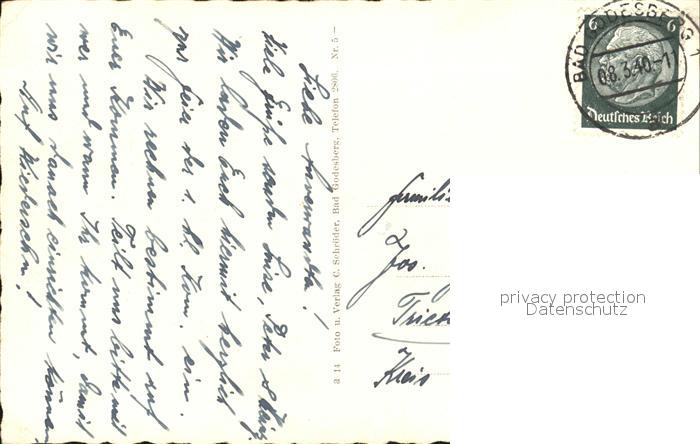 Liebe Anverwandte!
Viele Grüße senden Luise, Peter &
Wir laden Euch hiermit herzlich
zur Feier der 1. hl. Kom. ein.
Wir rechnen bestimmt auf
Euer Kommen. Teilt uns bitte mit
wer und wann Ihr kommt, damit
wir uns danach einrichten können
Auf Wiedersehen!
a 14 Foto u. Verlag C. Schröder, Bad Godesberg, Telefon 2800. Nr. 5 –
6 6
Deutsches Reich
BAD GODESBERG 1
08.3.40-11
Familie
Jos.
Trier
Kreis
privacy protection
Datenschutz